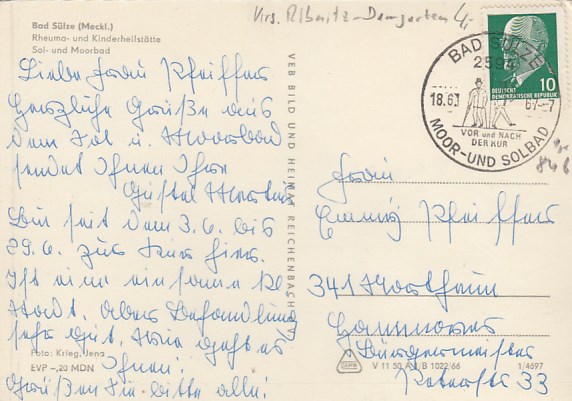 Krs. Ribnitz-Damgarten
Bad Sülze (Meckl.)
Rheuma- und Kinderheilstätte
Sol- und Moorbad
Liebe Frau Pfeiffer
Herzliche Grüße aus
dem Sol u. Moorbad
sendet Ihnen Ihre
Gustel
Bin seit dem 3.6. bis
29.6. zur Kur hier.
Ist eine einsame Kl
Stadt. Aber Behandlung
sehr gut. Wie geht es
Ihnen!
Grüßen Sie bitte alle!
Foto: Krieg, Jena
EVP –,20 MDN
VEB BILD UND HEIMAT REICHENBACH
10
DEUTSCHE
DEMOKRATISCHE REPUBLIK
BAD SÜLZE
2594
18.6.
67.-7
VOR und NACH
DER KUR
MOOR- UND SOLBAD
846
Frau
Emmy Pfeiffer
341 Northeim
Hannover
Bürgermeister
Peterstr 33
V 11 50 A B 1022/66
1/4697